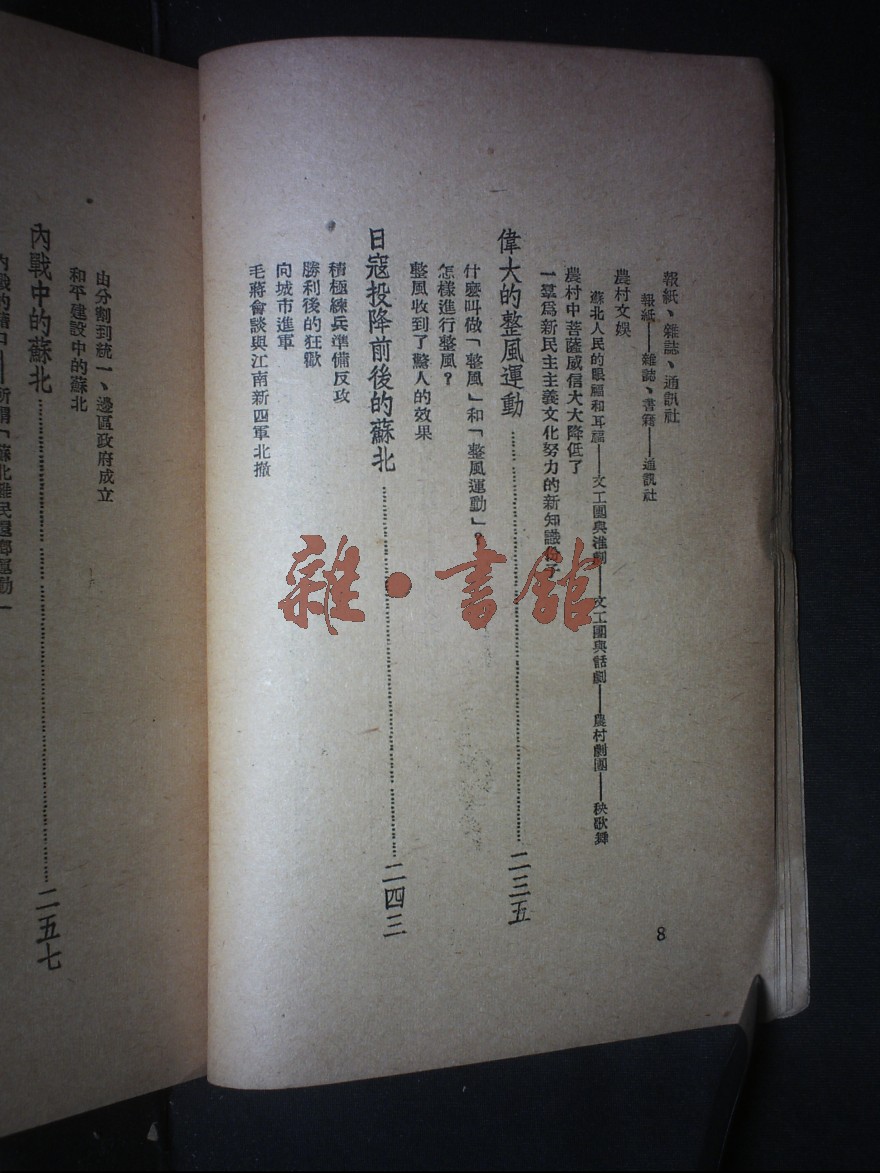 報紙、雜誌、通訊社
報紙——雜誌、書籍——通訊社
農村文娛
蘇北人民的眼福和耳福——文工團與淮劇——文工團與話劇——農村劇團——秧歌舞
農村中菩薩威信大大降低了
一羣爲新民主主義文化努力的新知識份子
偉大的整風運動……二三五
什麽叫做「整風」和「整風運動」?
怎樣進行整風?
整風收到了驚人的效果
日寇投降前後的蘇北……二四三
積極練兵準備反攻
勝利後的狂歡
向城市進軍
毛蔣會談與江南新四軍北撤
8
由分割到統一、邊區政府成立
和平建設中的蘇北
內戰中的蘇北……二五七
內戰的藉口——所謂「蘇北難民還鄉運動
雜·書館